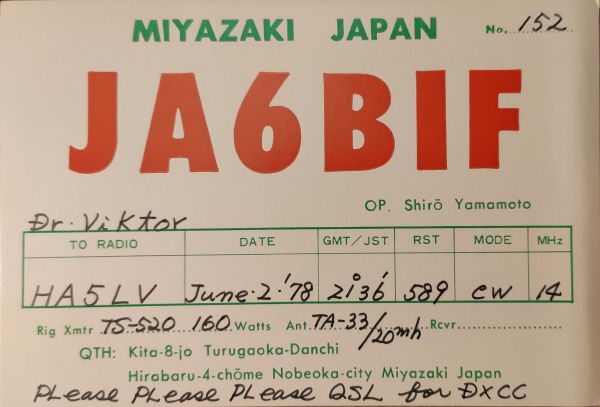 MIYAZAKI JAPAN No. 152
JA6BIF
OP. Shirō Yamamoto
Dr. Viktor
TO RADIO DATE GMT/JST RST MODE MHz
HA5LV June.2.'78 21°36' 589 CW 14
Rig Xmtr TS-520 160 Watts Ant. TA-33/20mh Rcvr
QTH: Kita-8-jo Turugaoka-Danchi
Hirabaru-4-chōme Nobeoka-city Miyazaki Japan
PLease PLease PLease QSL for DXCC